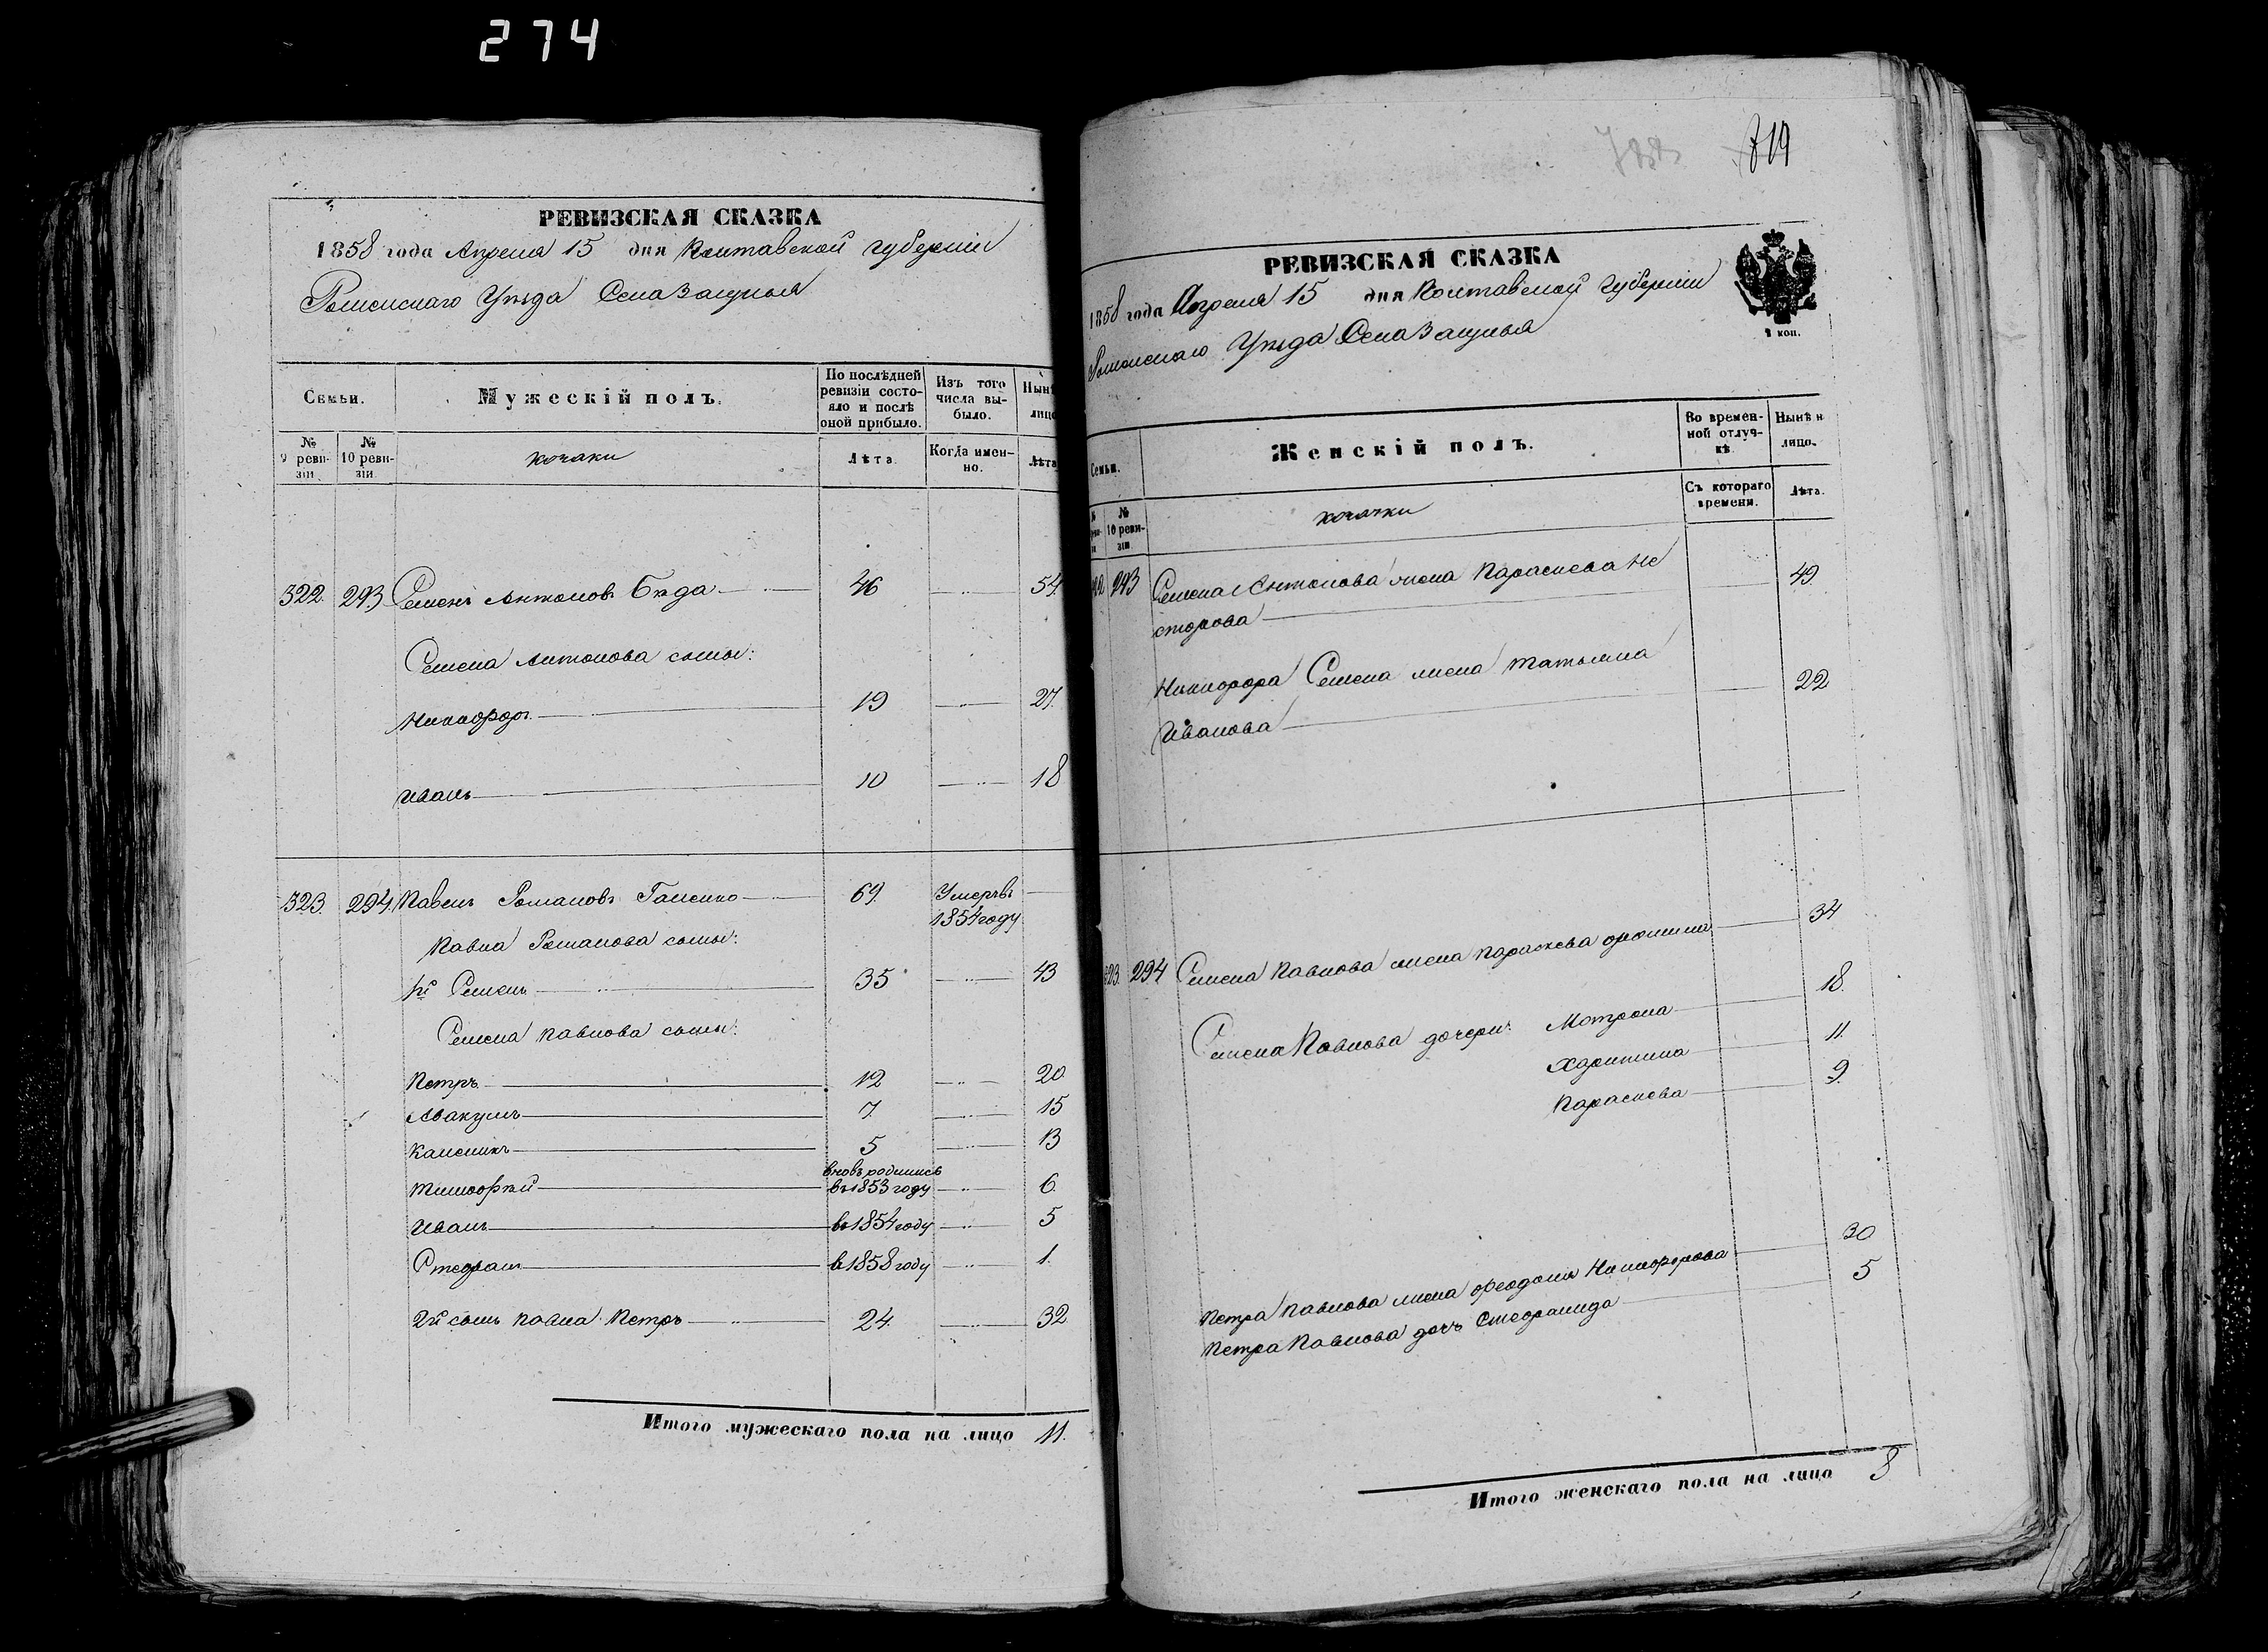 274
РЕВИЗСКАЯ СКАЗКА
1858 года Апреля 15 дня Полтавской губернии
Роменскаго Уезда Села Зацнья
Семьи.
Мужескій полъ.
По послѣдней ревизіи состояло и послѣ оной прибыло.
Изъ того числа выбыло.
Нынѣ лицо
№ 9 ревизіи
№ 10 ревизіи
козаки
Лѣта.
Когда именно.
Лѣта
322. 293 Семенъ Антоновъ Бѣда 46 54
Семена Антонова сыны:
Никифоръ 19 27.
Иванъ 10 18
323. 294. Павелъ Романовъ Галенко 69. Умеръ въ 1854 году
Павла Романова сыны:
1й Семенъ 35 43
Семена Павлова сыны:
Петръ 12 20
Авакумъ 7. 15
Калиникъ 5 13
Тимофѣй вновь родились въ 1853 году 6.
Иванъ въ 1854 году 5
Стефанъ въ 1858 году 1.
2й сынъ Павла Петръ 24. 32
Итого мужескаго пола на лицо 11.
719
РЕВИЗСКАЯ СКАЗКА
1858 года Апреля 15 дня Полтавской губернии
Роменскаго Уезда Села Зацнья
2 коп.
Семьи.
Женскій полъ.
Во временной отлучкѣ
Нынѣ н лицо.
№ 10 ревизіи
козачки
Съ котораго времени.
Лѣта.
22 293 Семена Антонова жена Параскева Не
сторова 49
Никифора Семена жена Татьяна
Иванова 22
323. 294 Семена Павлова жена Параскева Фомина 34
Семена Павлова дочери: Мотрона 18.
Харитина 11.
Параскева 9.
Петра Павлова жена Феодосия Никифорова 30
Петра Павлова дочь Стефанида 5
Итого женскаго пола на лицо 8